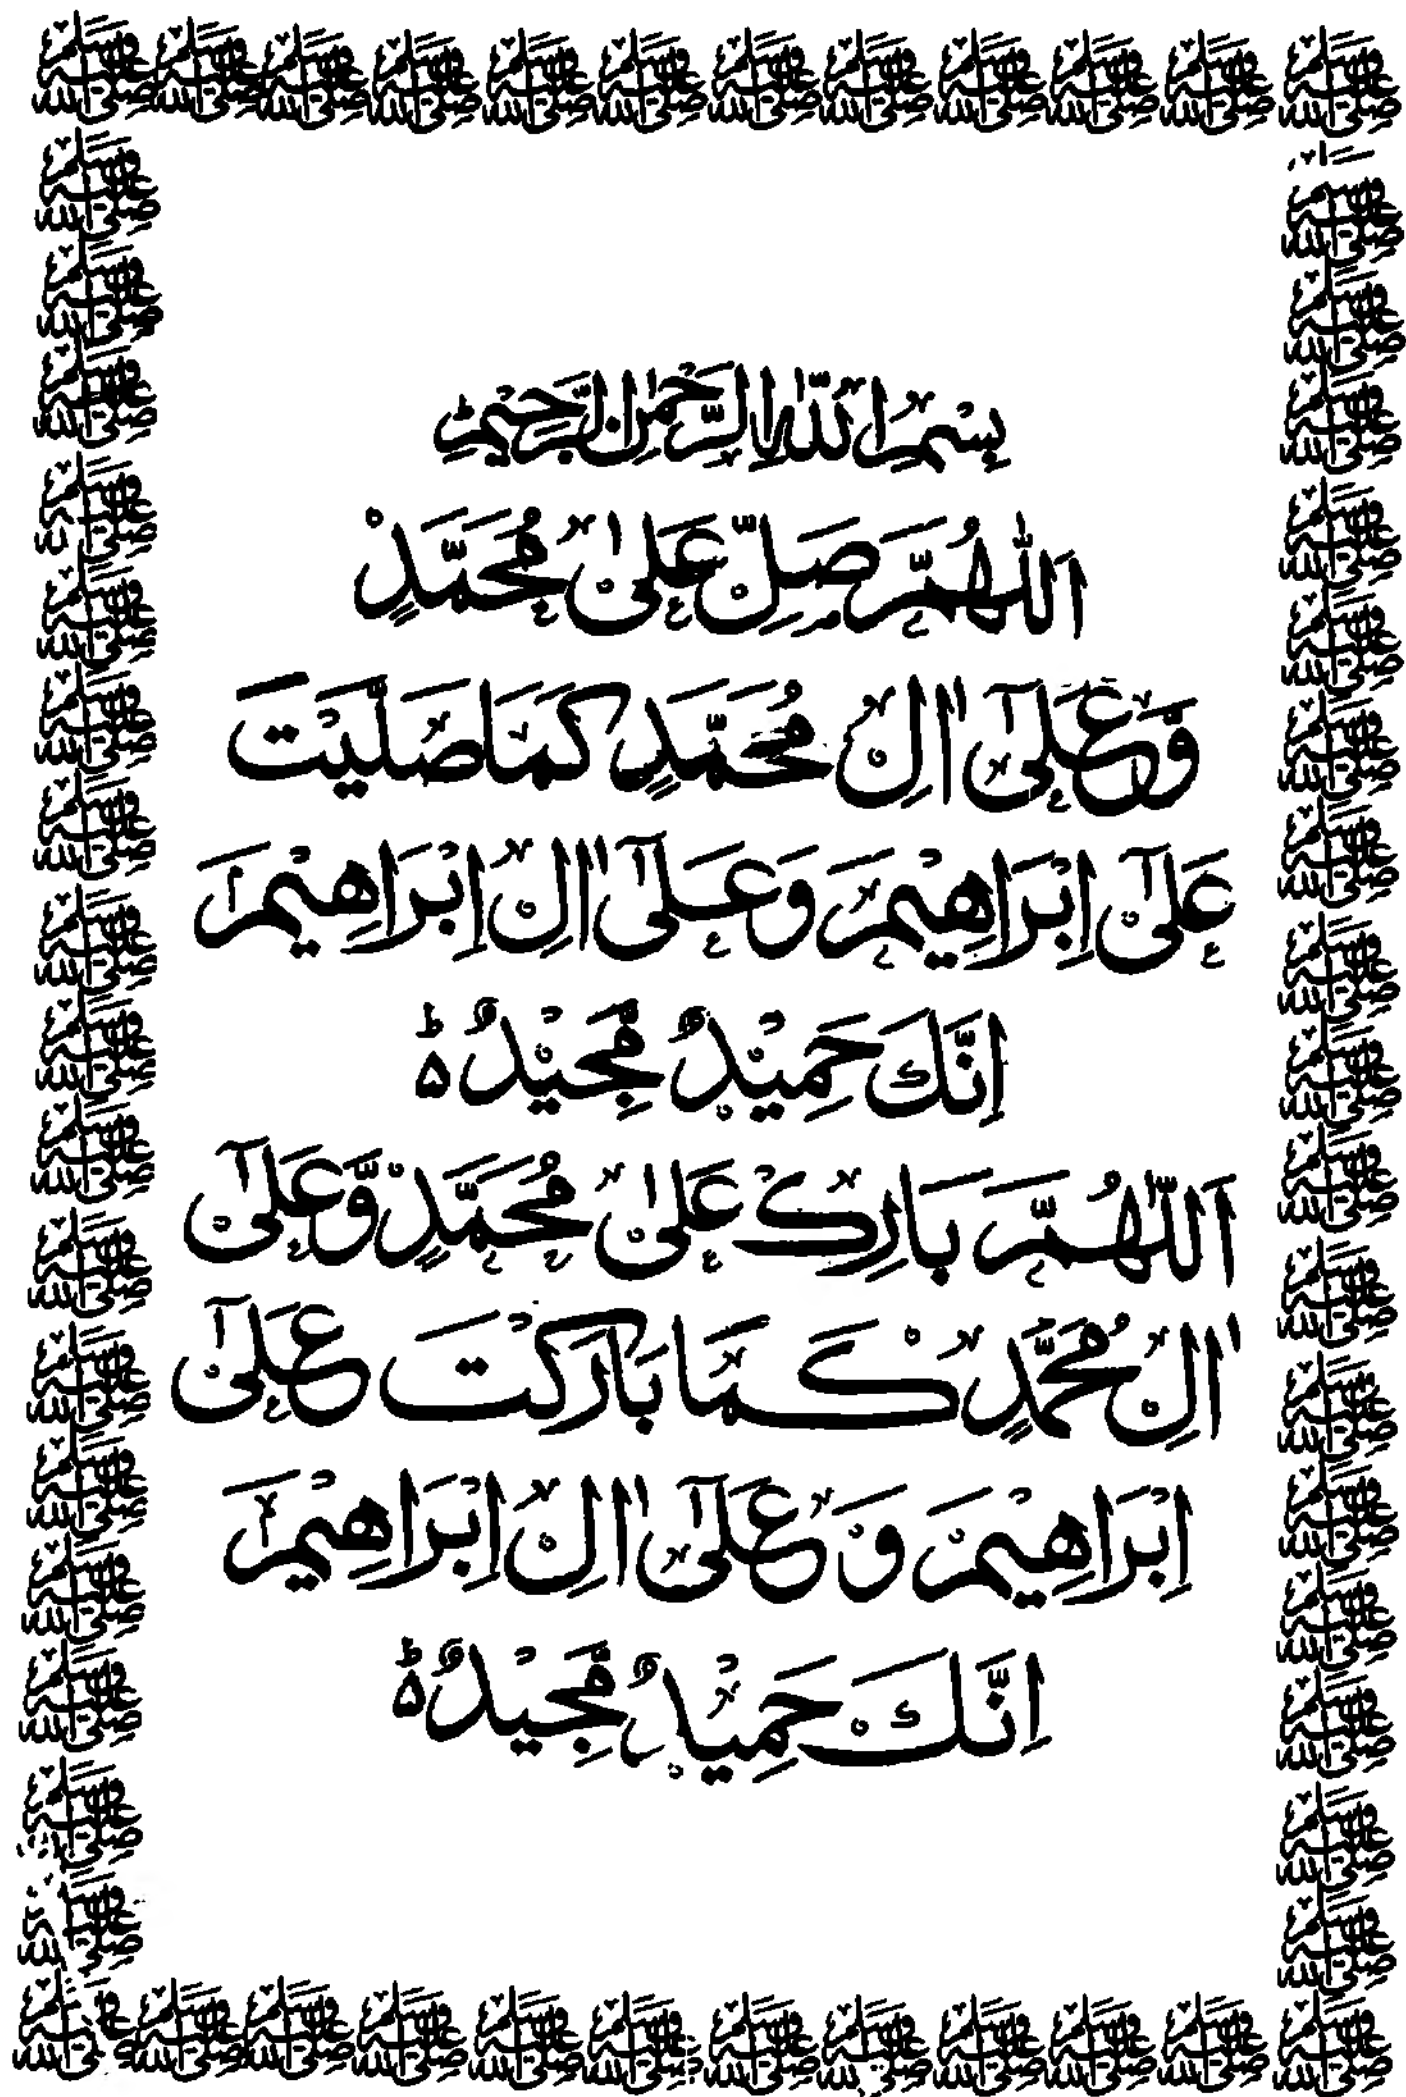 بِسْمِ اللّٰهِ الرَّحْمٰنِ الرَّحِيْمِ ؕ
اَللّٰهُمَّ صَلِّ عَلٰى مُحَمَّدٍ
وَّعَلٰٓى اٰلِ مُحَمَّدٍ كَمَا صَلَّيْتَ
عَلٰٓى اِبْرَاهِيْمَ وَعَلٰٓى اٰلِ اِبْرَاهِيْمَ
اِنَّكَ حَمِيْدٌ مَّجِيْدٌ ؕ
اَللّٰهُمَّ بَارِكْ عَلٰى مُحَمَّدٍ وَّعَلٰٓى
اٰلِ مُحَمَّدٍ كَمَا بَارَكْتَ عَلٰٓى
اِبْرَاهِيْمَ وَعَلٰٓى اٰلِ اِبْرَاهِيْمَ
اِنَّكَ حَمِيْدٌ مَّجِيْدٌ ؕ